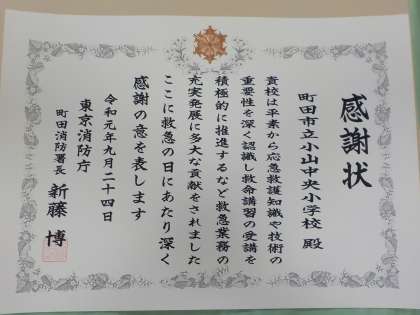 感謝状
町田市立小山中央小学校 殿
貴校は平素から応急救護知識や技術の
重要性を深く認識し救命講習の受講を
積極的に推進するなど救急業務の
充実発展に多大な貢献をされました
ここに救急の日にあたり深く
感謝の意を表します
令和元年九月二十四日
東京消防庁
町田消防署長 新藤 博